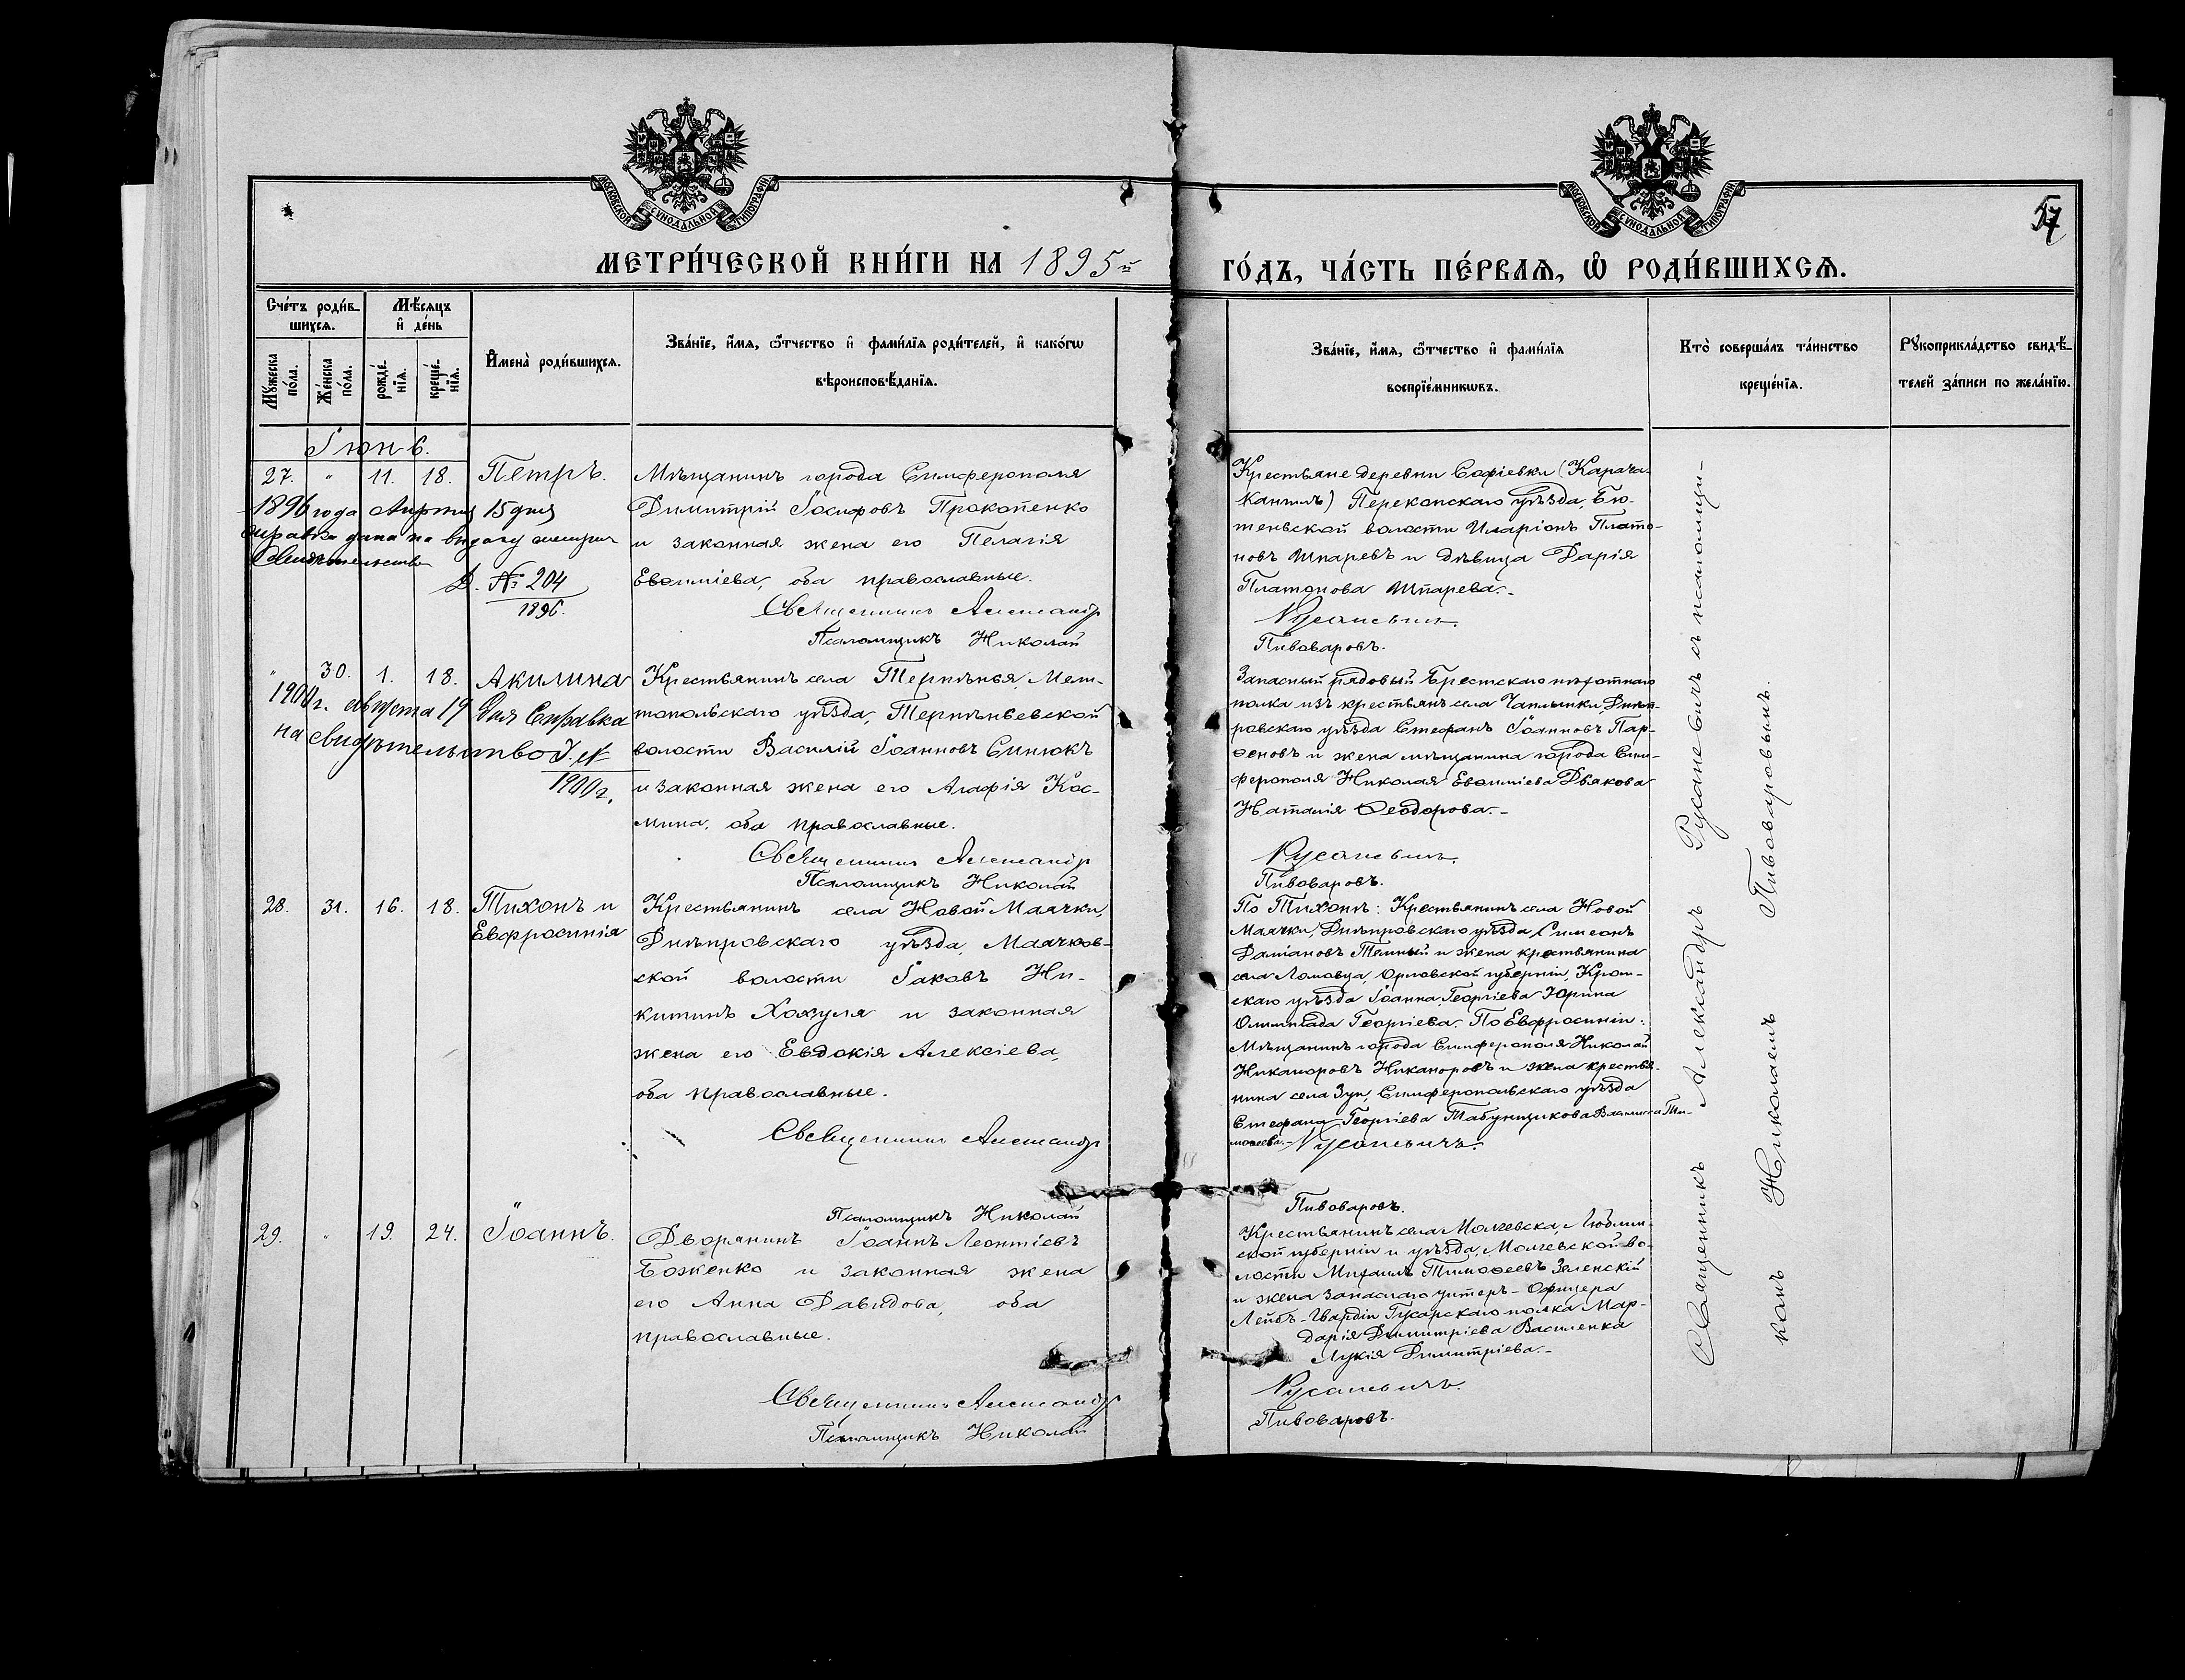 МОСКОВСКОЙ СѴНОДАЛЬНОЙ ТИПОГРАФІИ
МОСКОВСКОЙ СѴНОДАЛЬНОЙ ТИПОГРАФІИ
57
МЕТРИ́ЧЕСКОЙ КНИ́ГИ НА 1895й
ГО́ДЪ, ЧА́СТЬ ПЕ́РВАѦ, Ѡ РОДИ́ВШИХСѦ.
Сче́тъ роди́в-
шихсѧ.
Мѣ́сѧцъ
и де́нь
Мꙋ́жеска
по́ла.
Же́нска
по́ла.
рожде́-
нїѧ.
креще́-
нїѧ.
Имена̀ роди́вшихсѧ.
Зва́нїе, и́мѧ, ѻ́тчество и фами́лїѧ роди́телей, и како́гѡ
вѣроисповѣ́данїѧ.
Зва́нїе, и́мѧ, ѻ́тчество и фами́лїѧ
воспрїе́мникѡвъ.
Кто̀ соверша́лъ та́инство
креще́нїѧ.
Рꙋкоприкла́дство свидѣ́-
телей за́писи по жела́нїю.
Іюнь.
27. " 11. 18. Петръ.
1896 года Апрѣля 15 дня
справка дана на выдачу метрич
Свидѣтельство
Д. № 204
1896.
Мѣщанинъ города Симферополя
Димитрій Іосифовъ Прокопенко
и законная жена его Пелагія
Евѳиміева, оба православные.
Священникъ Александр
Псаломщикъ Николай
Крестьяне деревни Софіевки (Карача-
Кангилъ) Перекопскаго уѣзда, Бю-
теньской волости Иларіонъ Плато-
новъ Шпаревъ и дѣвица Дарія
Платонова Шпарева.-
Русаневичъ.
Пивоваровъ.
" 30. 1. 18. Акилина
1900 г. Августа 19 дня Справка
на свидѣтельство Д. №
1900 г.
Крестьянинъ села Терпѣнья, Мели-
топольскаго уѣзда, Терпѣньевской
волости Василій Іоанновъ Синюкъ
и законная жена его Агафія Кос-
мина, оба православные.
Священникъ Александр
Псаломщикъ Николай
Запасный рядовый Брестскаго пѣхотнаго
полка изъ крестьянъ села Чаплынки, Днѣп-
ровскаго уѣзда Стефанъ Іоанновъ Пар-
ѳеновъ и жена мѣщанина города Сим-
ферополя Николая Евѳиміева Дьякова
Наталія Ѳеодорова.-
Русаневичъ.
Пивоваровъ.
28. 31. 16. 18. Тихонъ и
Евфросинія
Крестьянинъ села Новой Маячки,
Днѣпровскаго уѣзда, Маячков-
ской волости Іаковъ Ни-
китинъ Хохуля и законная
жена его Евдокія Алексіева,
оба православные.
Священникъ Александр
Псаломщикъ Николай
По Тихонѣ: Крестьянинъ села Новой
Маячки, Днѣпровскаго уѣзда Симеонъ
Даміановъ Темный и жена крестьянина
села Ломовца, Орловской губерніи, Кром-
скаго уѣзда Іоанна Георгіева Юрина
Олимпіада Георгіева. По Евфросиніи:
Мѣщанинъ города Симферополя Николай
Никаноровъ Никаноровъ и жена крестья-
нина села Зуи, Симферопольскаго уѣзда
Стефана Георгіева Табунщикова Василисса Ти-
моѳеева.- Русаневичъ.
Пивоваровъ.
29. " 19. 24. Іоаннъ.
Дворянинъ Іоаннъ Леонтіевъ
Боженко и законная жена
его Анна Давидова, оба
православные.
Священникъ Александр
Псаломщикъ Николай
Крестьянинъ села Молчевска, Люблин-
ской губерніи и уѣзда, Молчевской во-
лости Михаилъ Тимоѳеевъ Зеленскій
и жена запаснаго унтеръ-Офицера
Лейбъ-Гвардіи Гусарскаго полка Мар-
дарія Димитріева Василенка
Лукія Димитріева.-
Русаневичъ.
Пивоваровъ.
Священникъ Александръ Русаневичъ съ псаломщи-
комъ Николаемъ Пивоваровымъ.